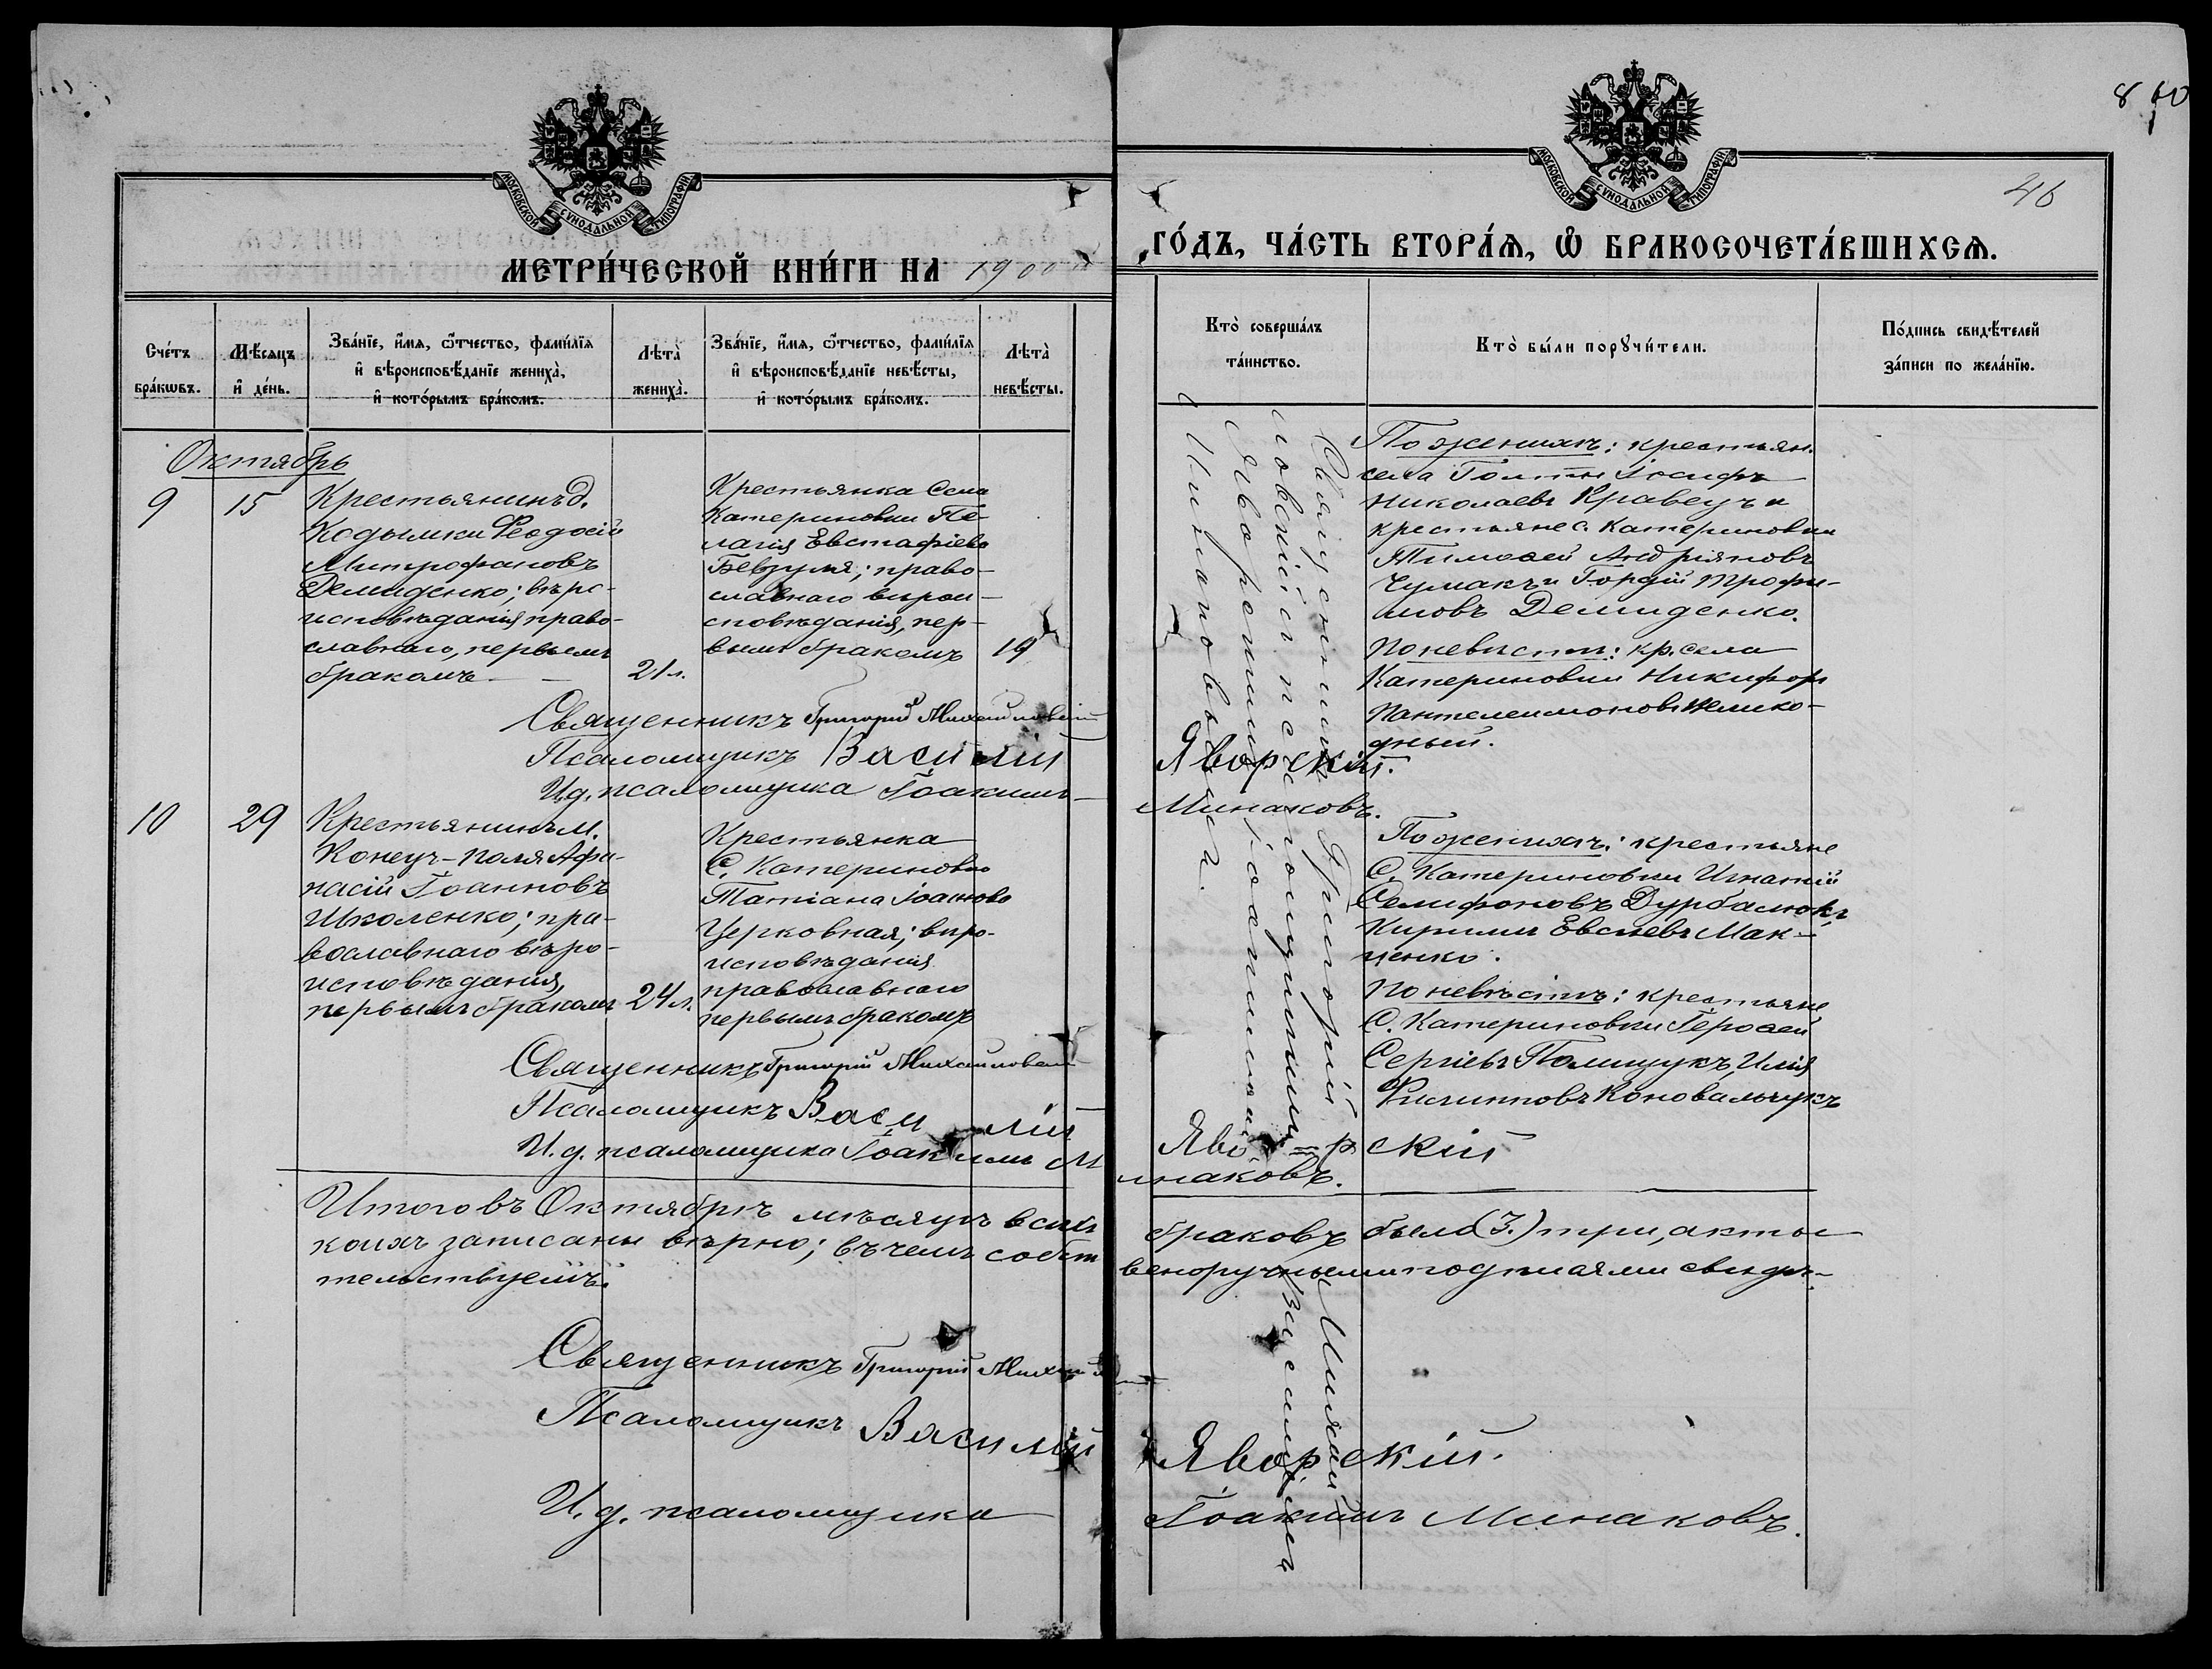 8
46
МОСКОВСКОЙ СѴНОДАЛЬНОЙ ТИПОГРАФІИ.
МОСКОВСКОЙ СѴНОДАЛЬНОЙ ТИПОГРАФІИ.
МЕТРИ́ЧЕСКОЙ КНИ́ГИ НА 1900 й ГО́ДЪ, ЧА́СТЬ ВТОРА́Я, Ѡ БРАКОСОЧЕТА́ВШИХСѦ.
Сче́тъ
бра́кѡвъ.
Мѣ́сяцъ
и҆ де́нь.
Зва́нїе, и҆́мя, ѻ҆́тчество, фами́лїя
и҆ вѣроисповѣ́данїе жениха̀,
и҆ кото́рымъ бра́комъ.
Лѣта̀
жениха̀.
Зва́нїе, и҆́мя, ѻ҆́тчество, фами́лїя
и҆ вѣроисповѣ́данїе невѣ́сты,
и҆ кото́рымъ бра́комъ.
Лѣта̀
невѣ́сты.
Кто̀ соверша́лъ
та́инство.
Кто̀ бы́ли порꙋчи́тели.
По́дпись свидѣ́телей
за́писи по жела́нїю.
Октябрь
9
15
Крестьянинъ д.
Кодымки Ѳеодосій
Митрофановъ
Демиденко; вѣро-
исповѣданія право-
славнаго, первымъ
бракомъ
21 л.
Крестьянка села
Катериновки Пе-
лагія Евстафіева
Бевзула; право-
славнаго вѣрои-
сповѣданія, пер-
вымъ бракомъ
19
Священникъ Григорій Михаиловскій
съ псаломщиками Василіемъ
Яворскимъ и Іоакимомъ
Минаковымъ.
По женихѣ: крестьян.
села Голты Іосифъ
Николаевъ Кравецъ и
крестьяне с. Катериновки
Тимоѳей Андріяновъ
Чумакъ и Гордій Трофи-
мовъ Демиденко.
По невѣстѣ: кр. села
Катериновки Никифоръ
Пантелеимоновъ Желико-
дный.
Священникъ Григорій Михаиловскій
Псаломщикъ Василій Яворскій.
И.д. псаломщика Іоакимъ Минаковъ.
10
29
Крестьянинъ м.
Конецъ-поля Афа-
насій Іоанновъ
Школенко; пра-
вославнаго вѣро-
исповѣданія,
первымъ бракомъ
24 л.
Крестьянка
С. Катериновки
Татіана Іоаннова
Церковная; вѣро-
исповѣданія
православнаго
первымъ бракомъ
По женихѣ: крестьяне
С. Катериновки Игнатій
Селифоновъ Дурбалюкъ,
Кириллъ Евсіевъ Мак-
ценко.
По невѣстѣ: крестьяне
С. Катериновки Героѳей
Сергіевъ Полищукъ, Илія
Филипповъ Коновальчукъ
Священникъ Григорій Михаиловскій
Псаломщикъ Василій Яворскій
И.д. псаломщика Іоакимъ Минаковъ.
Итого въ Октябрѣ мѣсяцѣ всѣхъ браковъ было (3.) три, акты
коихъ записаны вѣрно; въ чемъ собственоручными подписями свидѣ-
тельствуемъ.
Священникъ Григорій
Псаломщикъ Василій Яворскій.
И.д. псаломщика Іоакимъ Минаковъ.